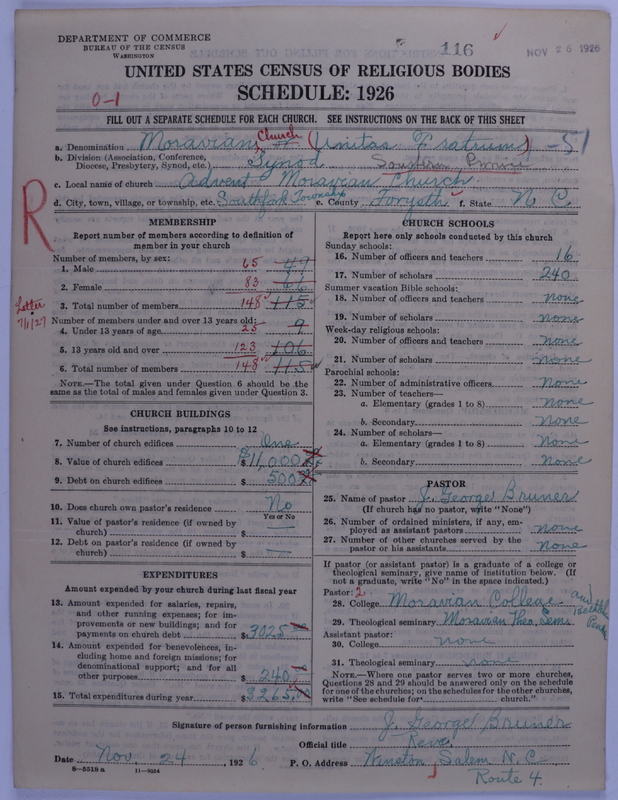 DEPARTMENT OF COMMERCE
BUREAU OF THE CENSUS
WASHINGTON
116
NOV 26 1926
UNITED STATES CENSUS OF RELIGIOUS BODIES
SCHEDULE: 1926
0-1
FILL OUT A SEPARATE SCHEDULE FOR EACH CHURCH. SEE INSTRUCTIONS ON THE BACK OF THIS SHEET
a. Denomination Moravian Church (Unitas Fratrum) -51
b. Division (Association, Conference, Diocese, Presbytery, Synod, etc.) Synod Southern Province
c. Local name of church Advent Moravian Church
d. City, town, village, or township, etc. Southfork Township e. County Forsyth f. State N C.
R
MEMBERSHIP
Report number of members according to definition of
member in your church
Number of members, by sex:
1. Male 65 49
2. Female 83 66
3. Total number of members 148 115
Letter
7/1/27
Number of members under and over 13 years old:
4. Under 13 years of age 25 9
5. 13 years old and over 123 106
6. Total number of members 148 115
NOTE.—The total given under Question 6 should be the
same as the total of males and females given under Question 3.
CHURCH BUILDINGS
See instructions, paragraphs 10 to 12
7. Number of church edifices One
8. Value of church edifices $11,000
9. Debt on church edifices $500
10. Does church own pastor's residence No
Yes or No
11. Value of pastor's residence (if owned by
church) $
12. Debt on pastor's residence (if owned by
church) $
EXPENDITURES
Amount expended by your church during last fiscal year
13. Amount expended for salaries, repairs,
and other running expenses; for im-
provements or new buildings; and for
payments on church debt $3025
14. Amount expended for benevolences, in-
cluding home and foreign missions; for
denominational support; and for all
other purposes $240
15. Total expenditures during year $3265
CHURCH SCHOOLS
Report here only schools conducted by this church
Sunday schools:
16. Number of officers and teachers 16
17. Number of scholars 240
Summer vacation Bible schools:
18. Number of officers and teachers none
19. Number of scholars none
Week-day religious schools:
20. Number of officers and teachers none
21. Number of scholars none
Parochial schools:
22. Number of administrative officers none
23. Number of teachers—
a. Elementary (grades 1 to 8) none
b. Secondary none
24. Number of scholars—
a. Elementary (grades 1 to 8) none
b. Secondary none
PASTOR
25. Name of pastor J. George Bruner
(If church has no pastor, write "None")
26. Number of ordained ministers, if any, em-
ployed as assistant pastors none
27. Number of other churches served by the
pastor or his assistants none
If pastor (or assistant pastor) is a graduate of a college or
theological seminary, give name of institution below. (If
not a graduate, write "No" in the space indicated.)
Pastor: 2
28. College Moravian College and
29. Theological seminary Moravian Theo. Semi.
Assistant pastor:
30. College none
31. Theological seminary none
NOTE.—Where one pastor serves two or more churches,
Questions 28 and 29 should be answered only on the schedule
for one of the churches; on the schedules for the other churches,
write "See schedule for church."
Signature of person furnishing information J. George Bruner
Official title Rev.
Date Nov 24, 1926 P. O. Address Winston Salem N. C
Route 4.
8—5518 a 11—9024